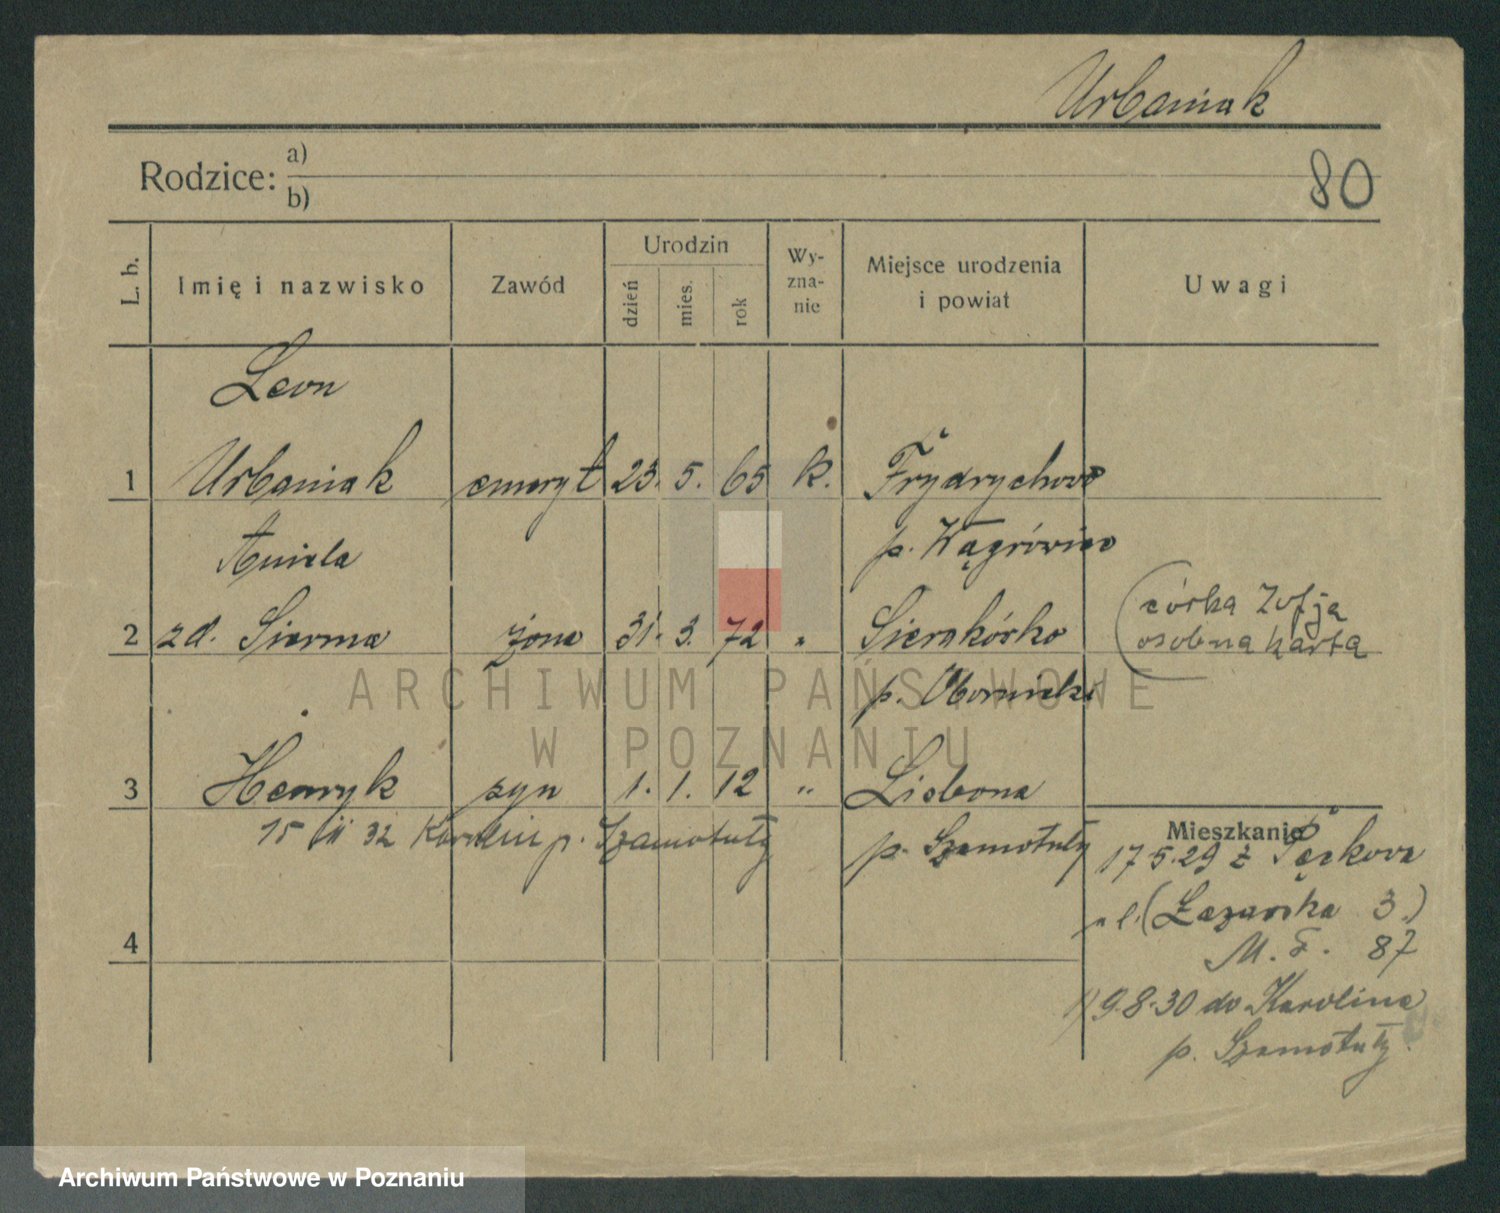 Urbaniak
80
Rodzice: a)
b)
L. b.
Imię i nazwisko
Zawód
Urodzin
dzień
mies.
rok
Wy-
zna-
nie
Miejsce urodzenia
i powiat
Uwagi
Leon
1 Urbaniak emeryt 23. 5. 65 k. Frydrychowo
p. Wągrówiec
Aniela
2 zd. Sierma żona 31. 3. 72 " Sierakórko
p. Obornicki
(córka Zofja
osobna karta
3 Henryk syn 1. 1. 12 " Lisbona
p. Szamotuły
15 II 32 Karolin p. Szamotuły
4
Mieszkanie
17 5.29 z
ul. (Łazarska 3.)
M. F. 87
1) 9.8.30 do Karolina
p. Szamotuły
ARCHIWUM PAŃSTWOWE
W POZNANIU
Archiwum Państwowe w Poznaniu